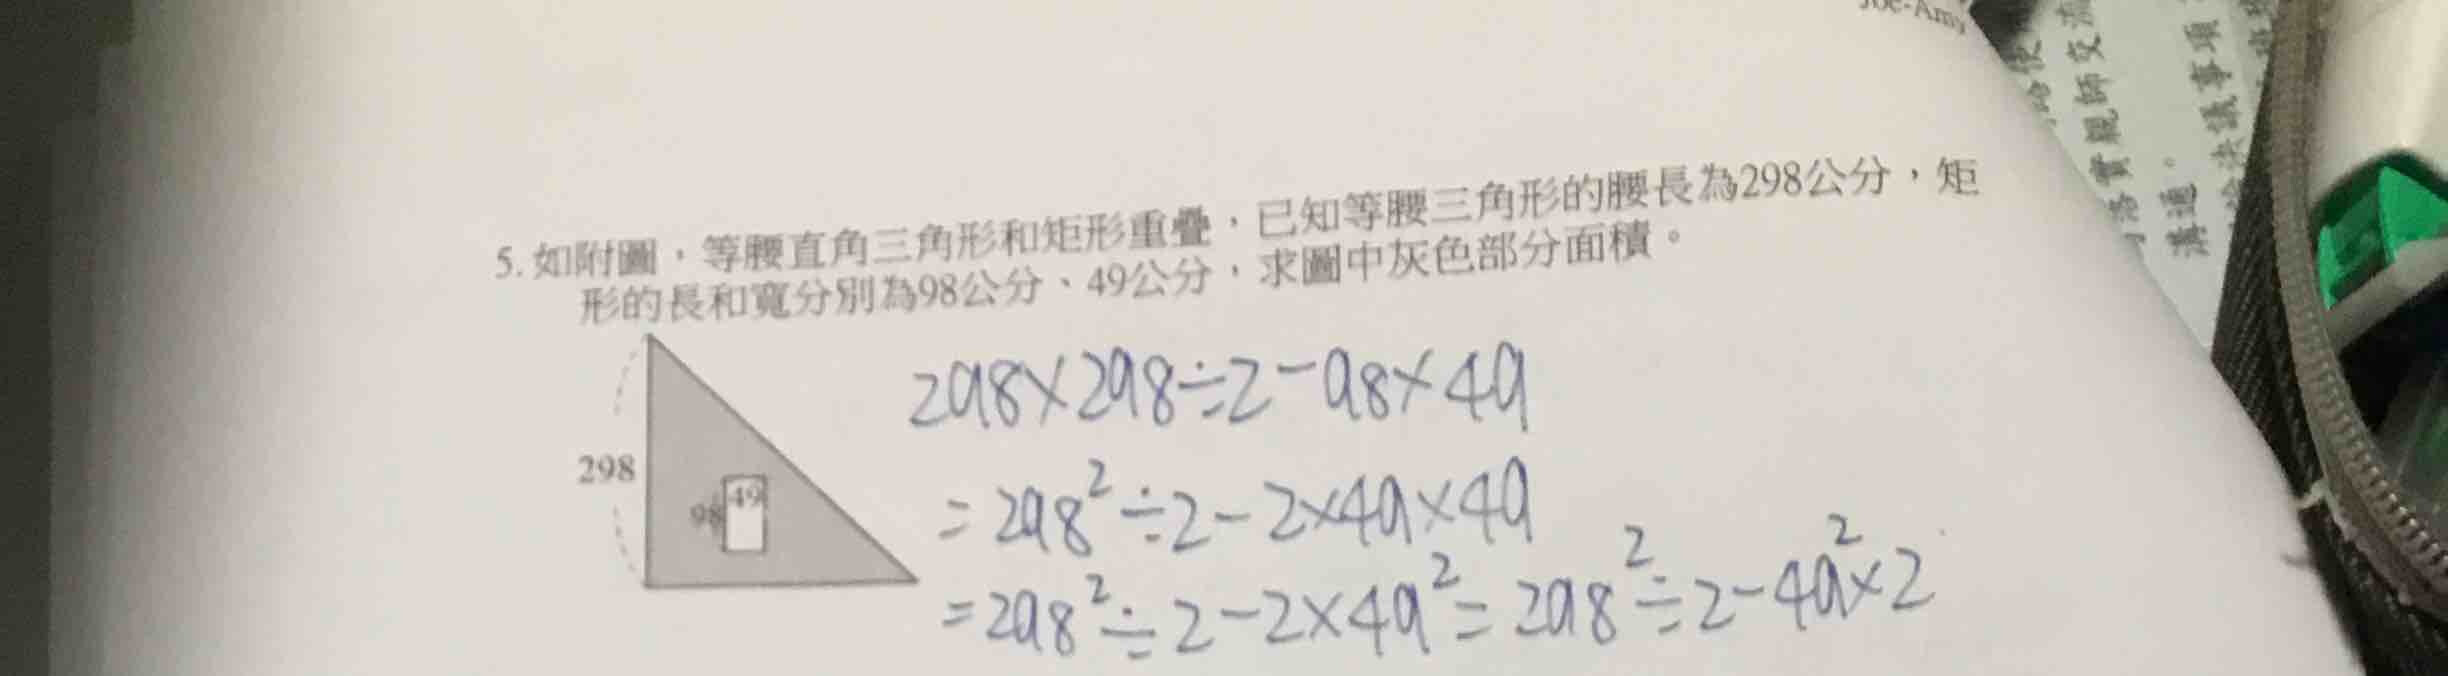 Joe-Amy
5. 如附圖，等腰直角三角形和矩形重疊，已知等腰三角形的腰長為298公分，矩
形的長和寬分別為98公分、49公分，求圖中灰色部分面積。
298
98
49
298×298÷2-98×49
=298²÷2-2×49×49
=298²÷2-2×49²=298²÷2-49²×2
落實親師交流
溝通。
決議事項